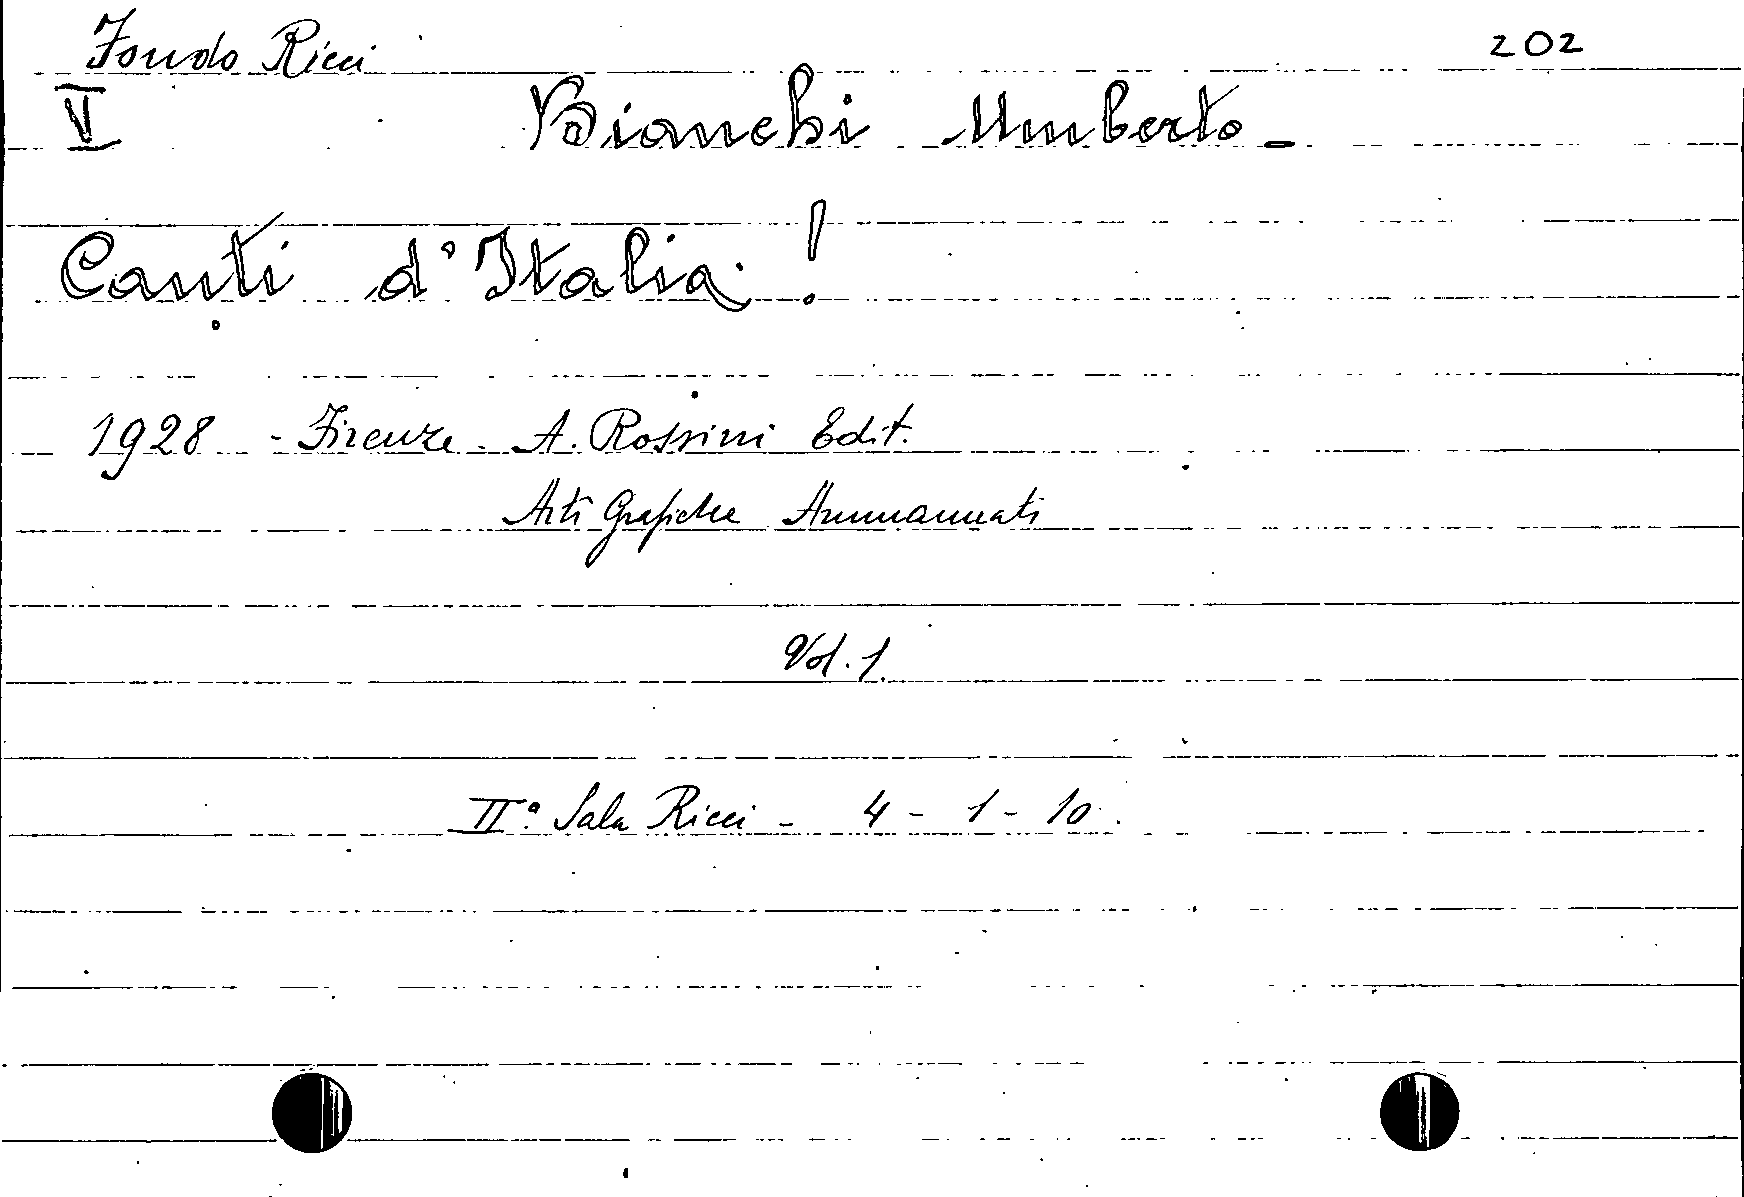 Fondo Ricci 202
V Bianchi Umberto -
Canti d'Italia !
1928 - Firenze - A. Rossini Edit.
Arti Grafiche Ammannati
Vol. 1.
IIª Sala Ricci - 4 - 1 - 10.